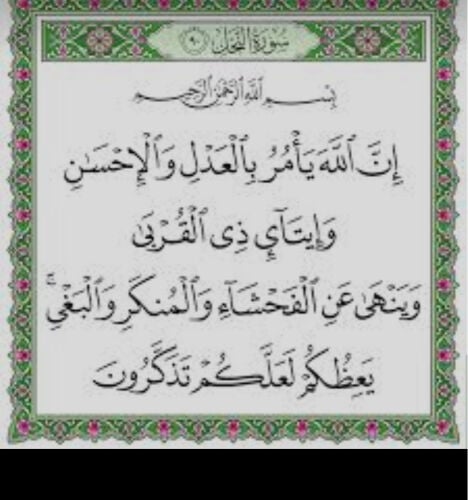 سُورَةُ النَّحْل ٩٠
بِسْمِ اللَّهِ الرَّحْمَٰنِ الرَّحِيمِ
إِنَّ ٱللَّهَ يَأْمُرُ بِٱلْعَدْلِ وَٱلْإِحْسَٰنِ
وَإِيتَآئِ ذِى ٱلْقُرْبَىٰ
وَيَنْهَىٰ عَنِ ٱلْفَحْشَآءِ وَٱلْمُنكَرِ وَٱلْبَغْىِ ۚ
يَعِظُكُمْ لَعَلَّكُمْ تَذَكَّرُونَ